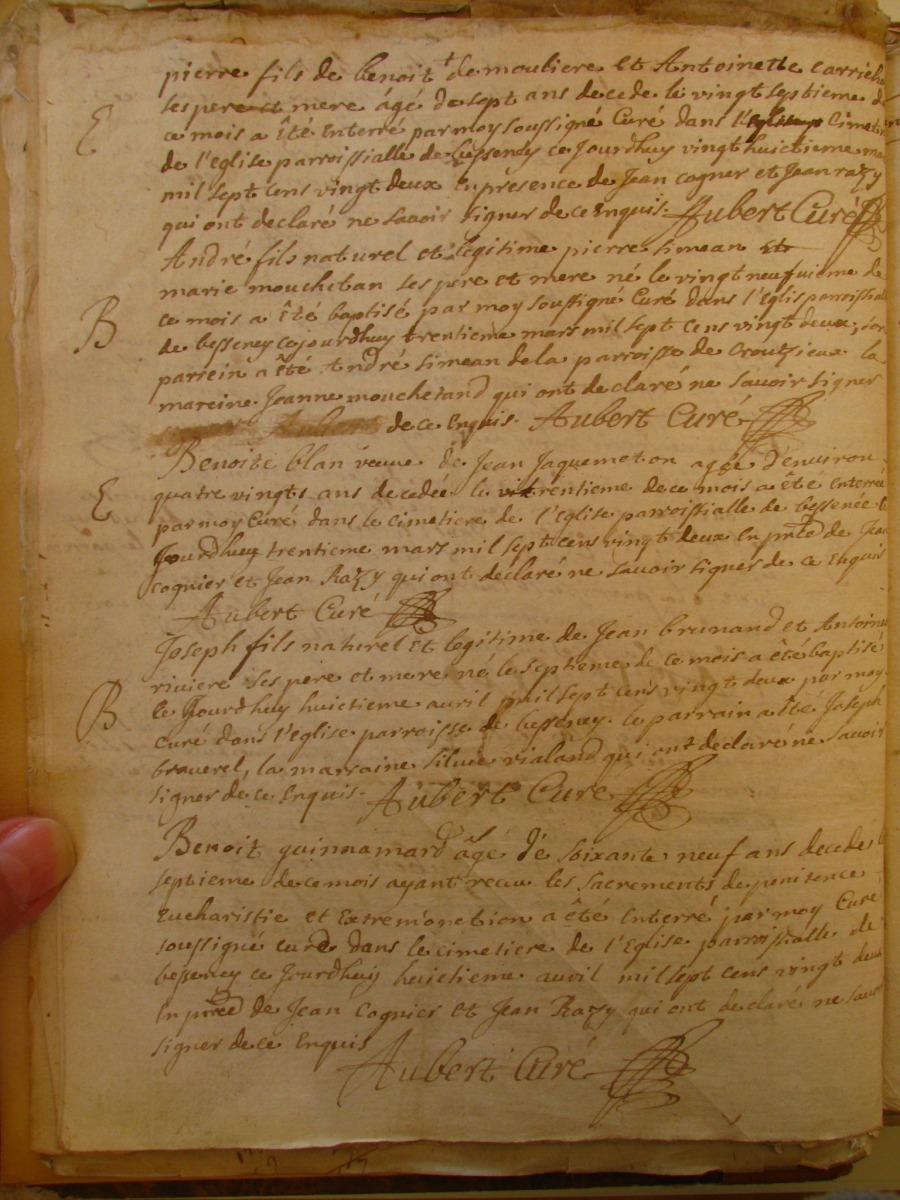 pierre fils de benoit de mouliere et Antoinette Carrich
E
ses pere et mere âgé de sept ans decede le vingt septieme d
ce mois a êté enterré par moy soussigné Curé dans l' Cimeti
de l'eglise parroissialle de bessendy ce Jourdhuy vingt huictieme ma
mil sept cens vingt deux en presence de Jean cogner et Jean razy
qui ont declaré ne savoir signer de ce Enquis. Aubert Curé
André fils naturel et legitime pierre simean et
marie mouchetan ses pere et mere né le vingt neufuieme de
B
ce mois a êté baptisé par moy soussigné Curé dans l'Eglis parroissial
de besseney ce jourdhuy trentieme mars mil sept cens vingt deux, son
parrein a êté André simean de la parroisse de croutzieux la
mareine Jeanne moucherand qui ont declaré ne savoir signer
de ce Enquis. Aubert Curé
Benoite blan veuue de Jean Jaquemeton agée d'environ
E
quatre vingts ans decedée le trentieme de ce mois a ête enterré
par moy Curé dans le cimetiere de l'eglise parroissialle de bessenée
Jourdhuy trentieme mars mil sept cens vingt deux En pnce de Jean
cognier et Jean Razy qui ont declaré ne savoir signer de ce Enquis
Aubert Curé
Joseph fils naturel et legitime de Jean brunand et Antoine
riviere ses pere et mere né le septieme de ce mois a êté baptisé
B
le Jourdhuy huictieme auril mil sept cens vingt deux par moy
curé dans l'eglise parroisse de besseney. le parrain a êté Joseph
brouerel, la marraine siluie rialand qui ont declaré ne savoir
signer de ce Enquis. Aubert Cure
Benoit guinnamard âgé de soixante neuf ans decede
septieme de ce mois ayant receu les sacrements de penitence
Eucharistie et Extremonction a êté Enterré par moy Curé
soussigné curé dans le cimetiere de l'Eglise parroissialle de
besseney ce Jourdhuy huictieme auril mil sept cens vingt deux
En pnce de Jean Cognier et Jean Razy qui ont declaré ne savoir
signer de ce Enquis
Aubert Curé